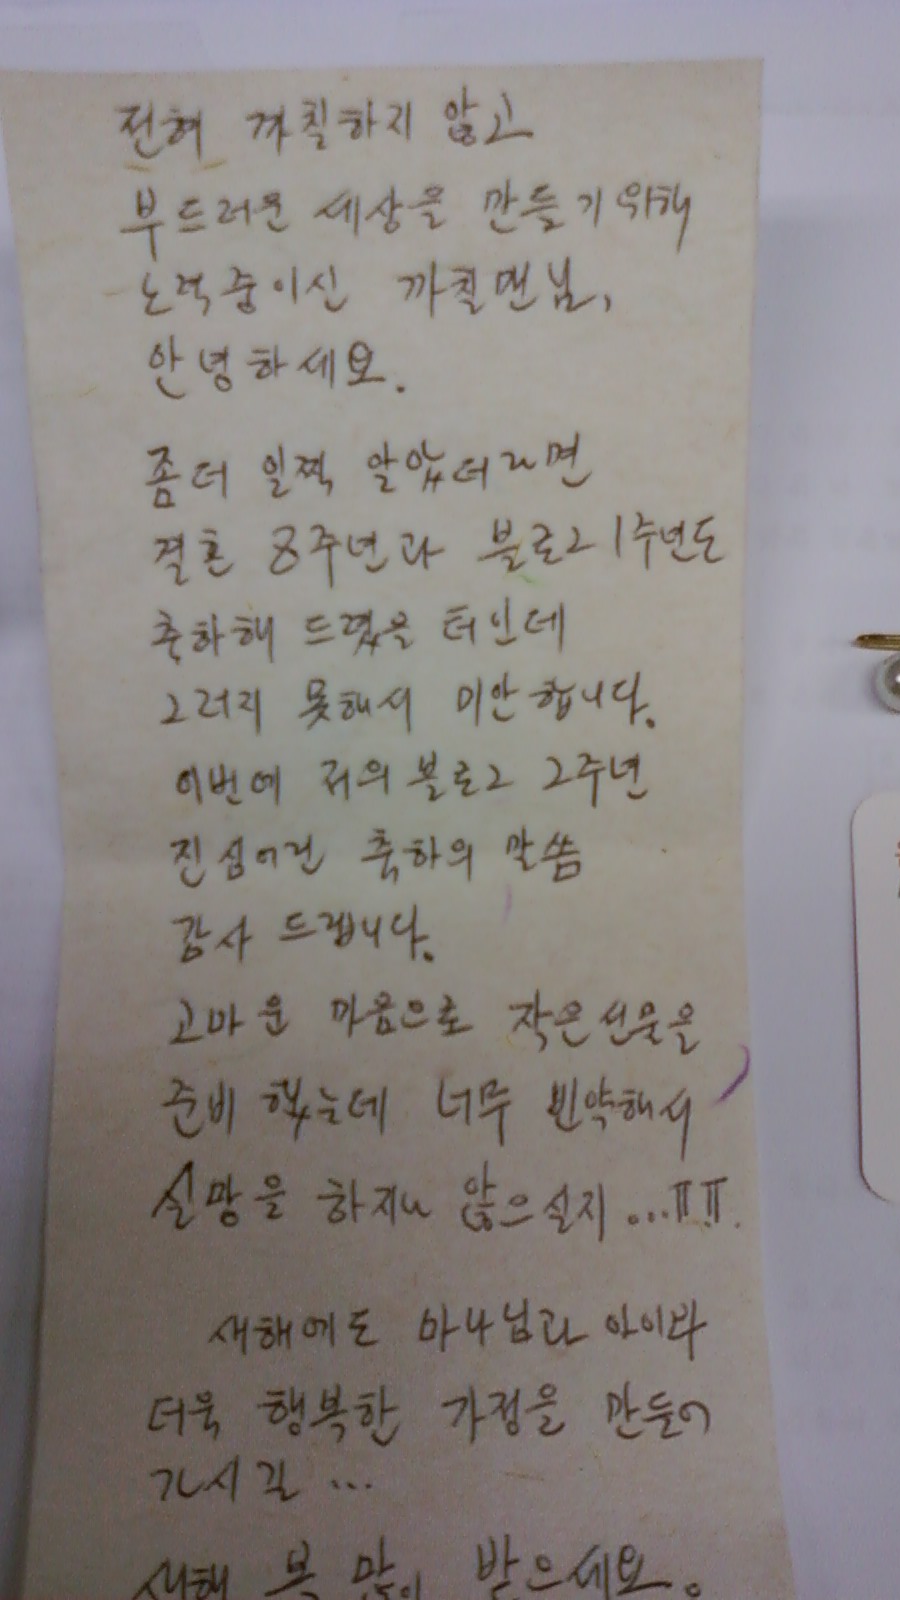 전혀 까칠하지 않고
부드러운 세상을 만들기 위해
노력중이신 까칠맨님,
안녕하세요.
좀더 일찍 알았더라면
결혼 8주년과 블로그 1주년도
축하해 드렸을 터인데
그러지 못해서 미안합니다.
이번에 저의 블로그 2주년
진심어린 축하의 말씀
감사 드립니다.
고마운 마음으로 작은 선물을
준비 했는데 너무 빈약해서
실망을 하지나 않으실지 ...ㅠㅠ.
새해에도 마나님과 아이와
더욱 행복한 가정을 만들어
가시길 ...
새해 복 많이 받으세요.